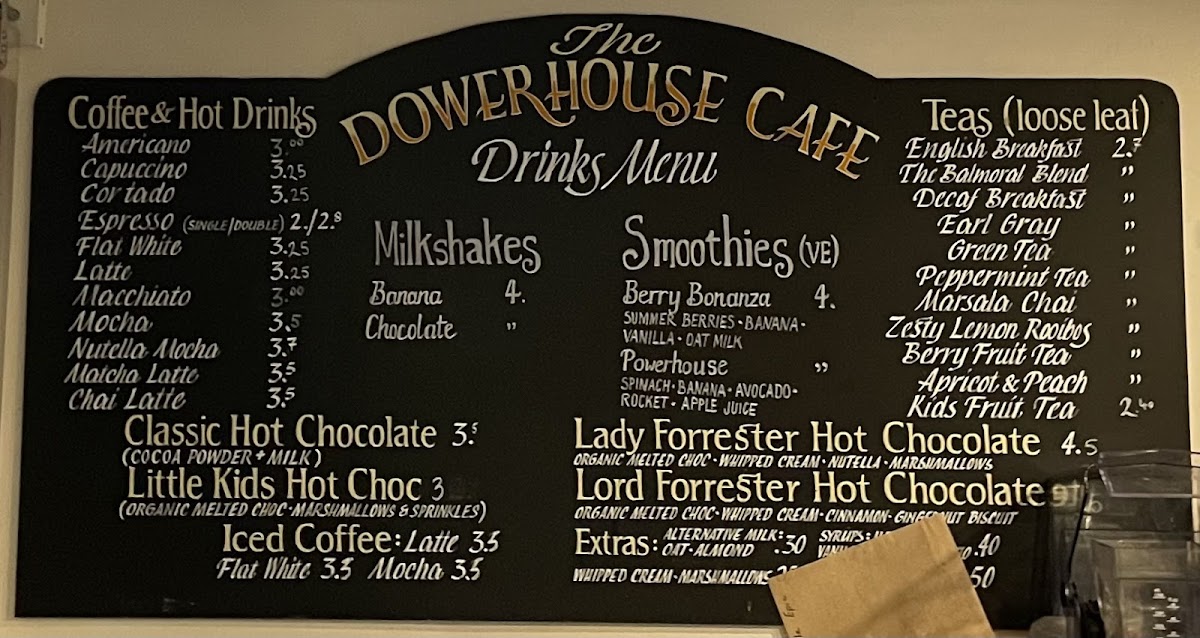 The
DOWERHOUSE CAFE
Drinks Menu
Coffee & Hot Drinks
Americano 3.00
Capuccino 3.25
Cortado 3.25
Espresso (SINGLE/DOUBLE) 2./2.8
Flat White 3.25
Latte 3.25
Macchiato 3.00
Mocha 3.5
Nutella Mocha 3.7
Matcha Latte 3.5
Chai Latte 3.5
Classic Hot Chocolate 3.5
(COCOA POWDER + MILK)
Little Kids Hot Choc 3
(ORGANIC MELTED CHOC • MARSHMALLOWS & SPRINKLES)
Iced Coffee: Latte 3.5
Flat White 3.5 Mocha 3.5
Milkshakes
Banana 4.
Chocolate "
Smoothies (VE)
Berry Bonanza 4.
SUMMER BERRIES • BANANA •
VANILLA • OAT MILK
Powerhouse "
SPINACH • BANANA • AVOCADO •
ROCKET • APPLE JUICE
Teas (loose leaf)
English Breakfast 2.7
The Balmoral Blend "
Decaf Breakfast "
Earl Gray "
Green Tea "
Peppermint Tea "
Marsala Chai "
Zesty Lemon Rooibos "
Berry Fruit Tea "
Apricot & Peach "
Kids Fruit Tea 2.40
Lady Forrester Hot Chocolate 4.5
ORGANIC MELTED CHOC • WHIPPED CREAM • NUTELLA • MARSHMALLOWS
Lord Forrester Hot Chocolate
ORGANIC MELTED CHOC • WHIPPED CREAM • CINNAMON • GINGERNUT BISCUIT
Extras: ALTERNATIVE MILK: SYRUPS:
OAT • ALMOND .30 .40
WHIPPED CREAM • MARSHMALLOWS 50